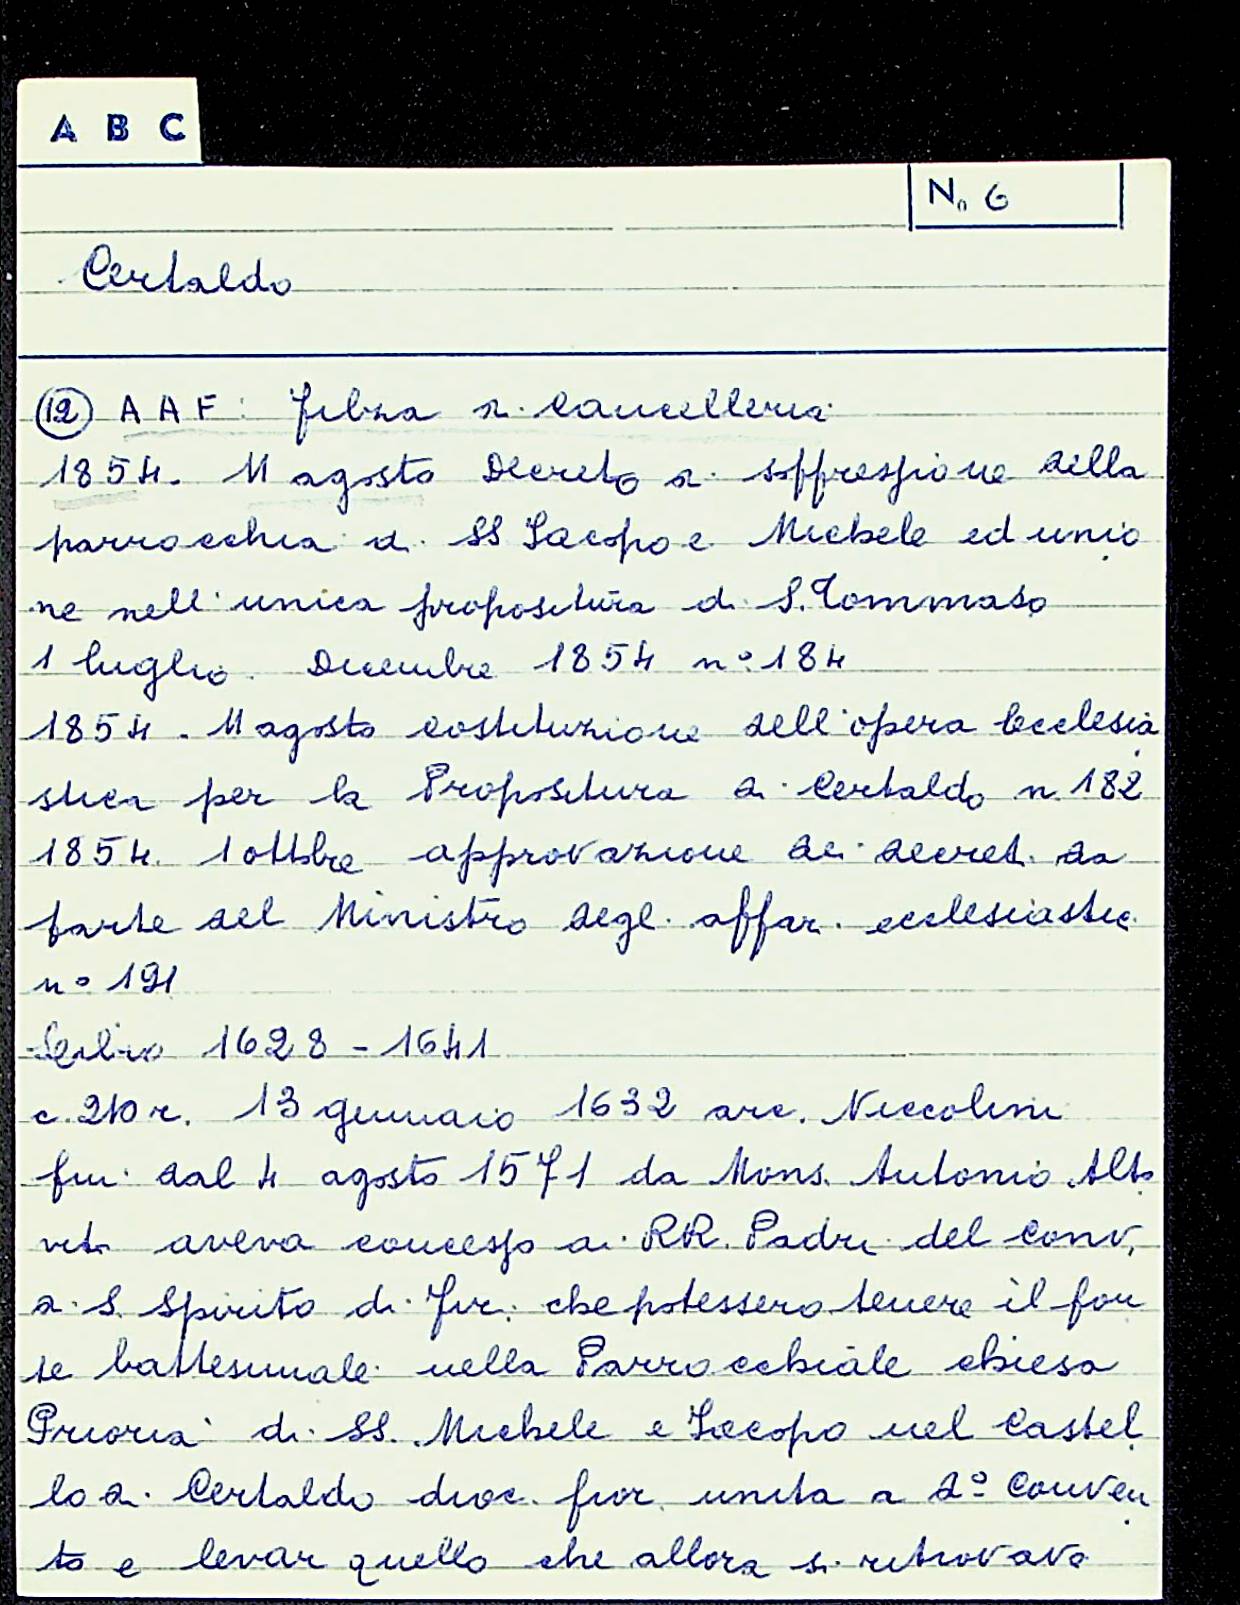 A B C
N. 6
Certaldo
12 A A F: filza di Cancelleria
1854. 11 agosto Decreto di soppressione della
parrocchia di SS Jacopo e Michele ed unio
ne nell'unica propositura di S. Tommaso
1 luglio. Dicembre 1854 n° 184
1854. 11 agosto costituzione dell'opera Ecclesia
stica per la Propositura di Certaldo n. 182
1854. 1 ottbre approvazione dei decreti da
parte del Ministro degli affari ecclesiastici
n° 191
1628 - 1641
c. 210 r. 13 gennaio 1632 arc. Niccolini
fin dal 4 agosto 1571 da Mons. Antonio Alto
viti aveva concesso ai RR. Padri del Conv.
di S. Spirito di Fir. che potessero tenere il fon
te battesimale nella Parrocchiale chiesa
Prioria di SS. Michele e Jacopo nel Castel
lo di Certaldo dioc. fior. unita a d° Conven
to e levar quello che allora si ritrovava